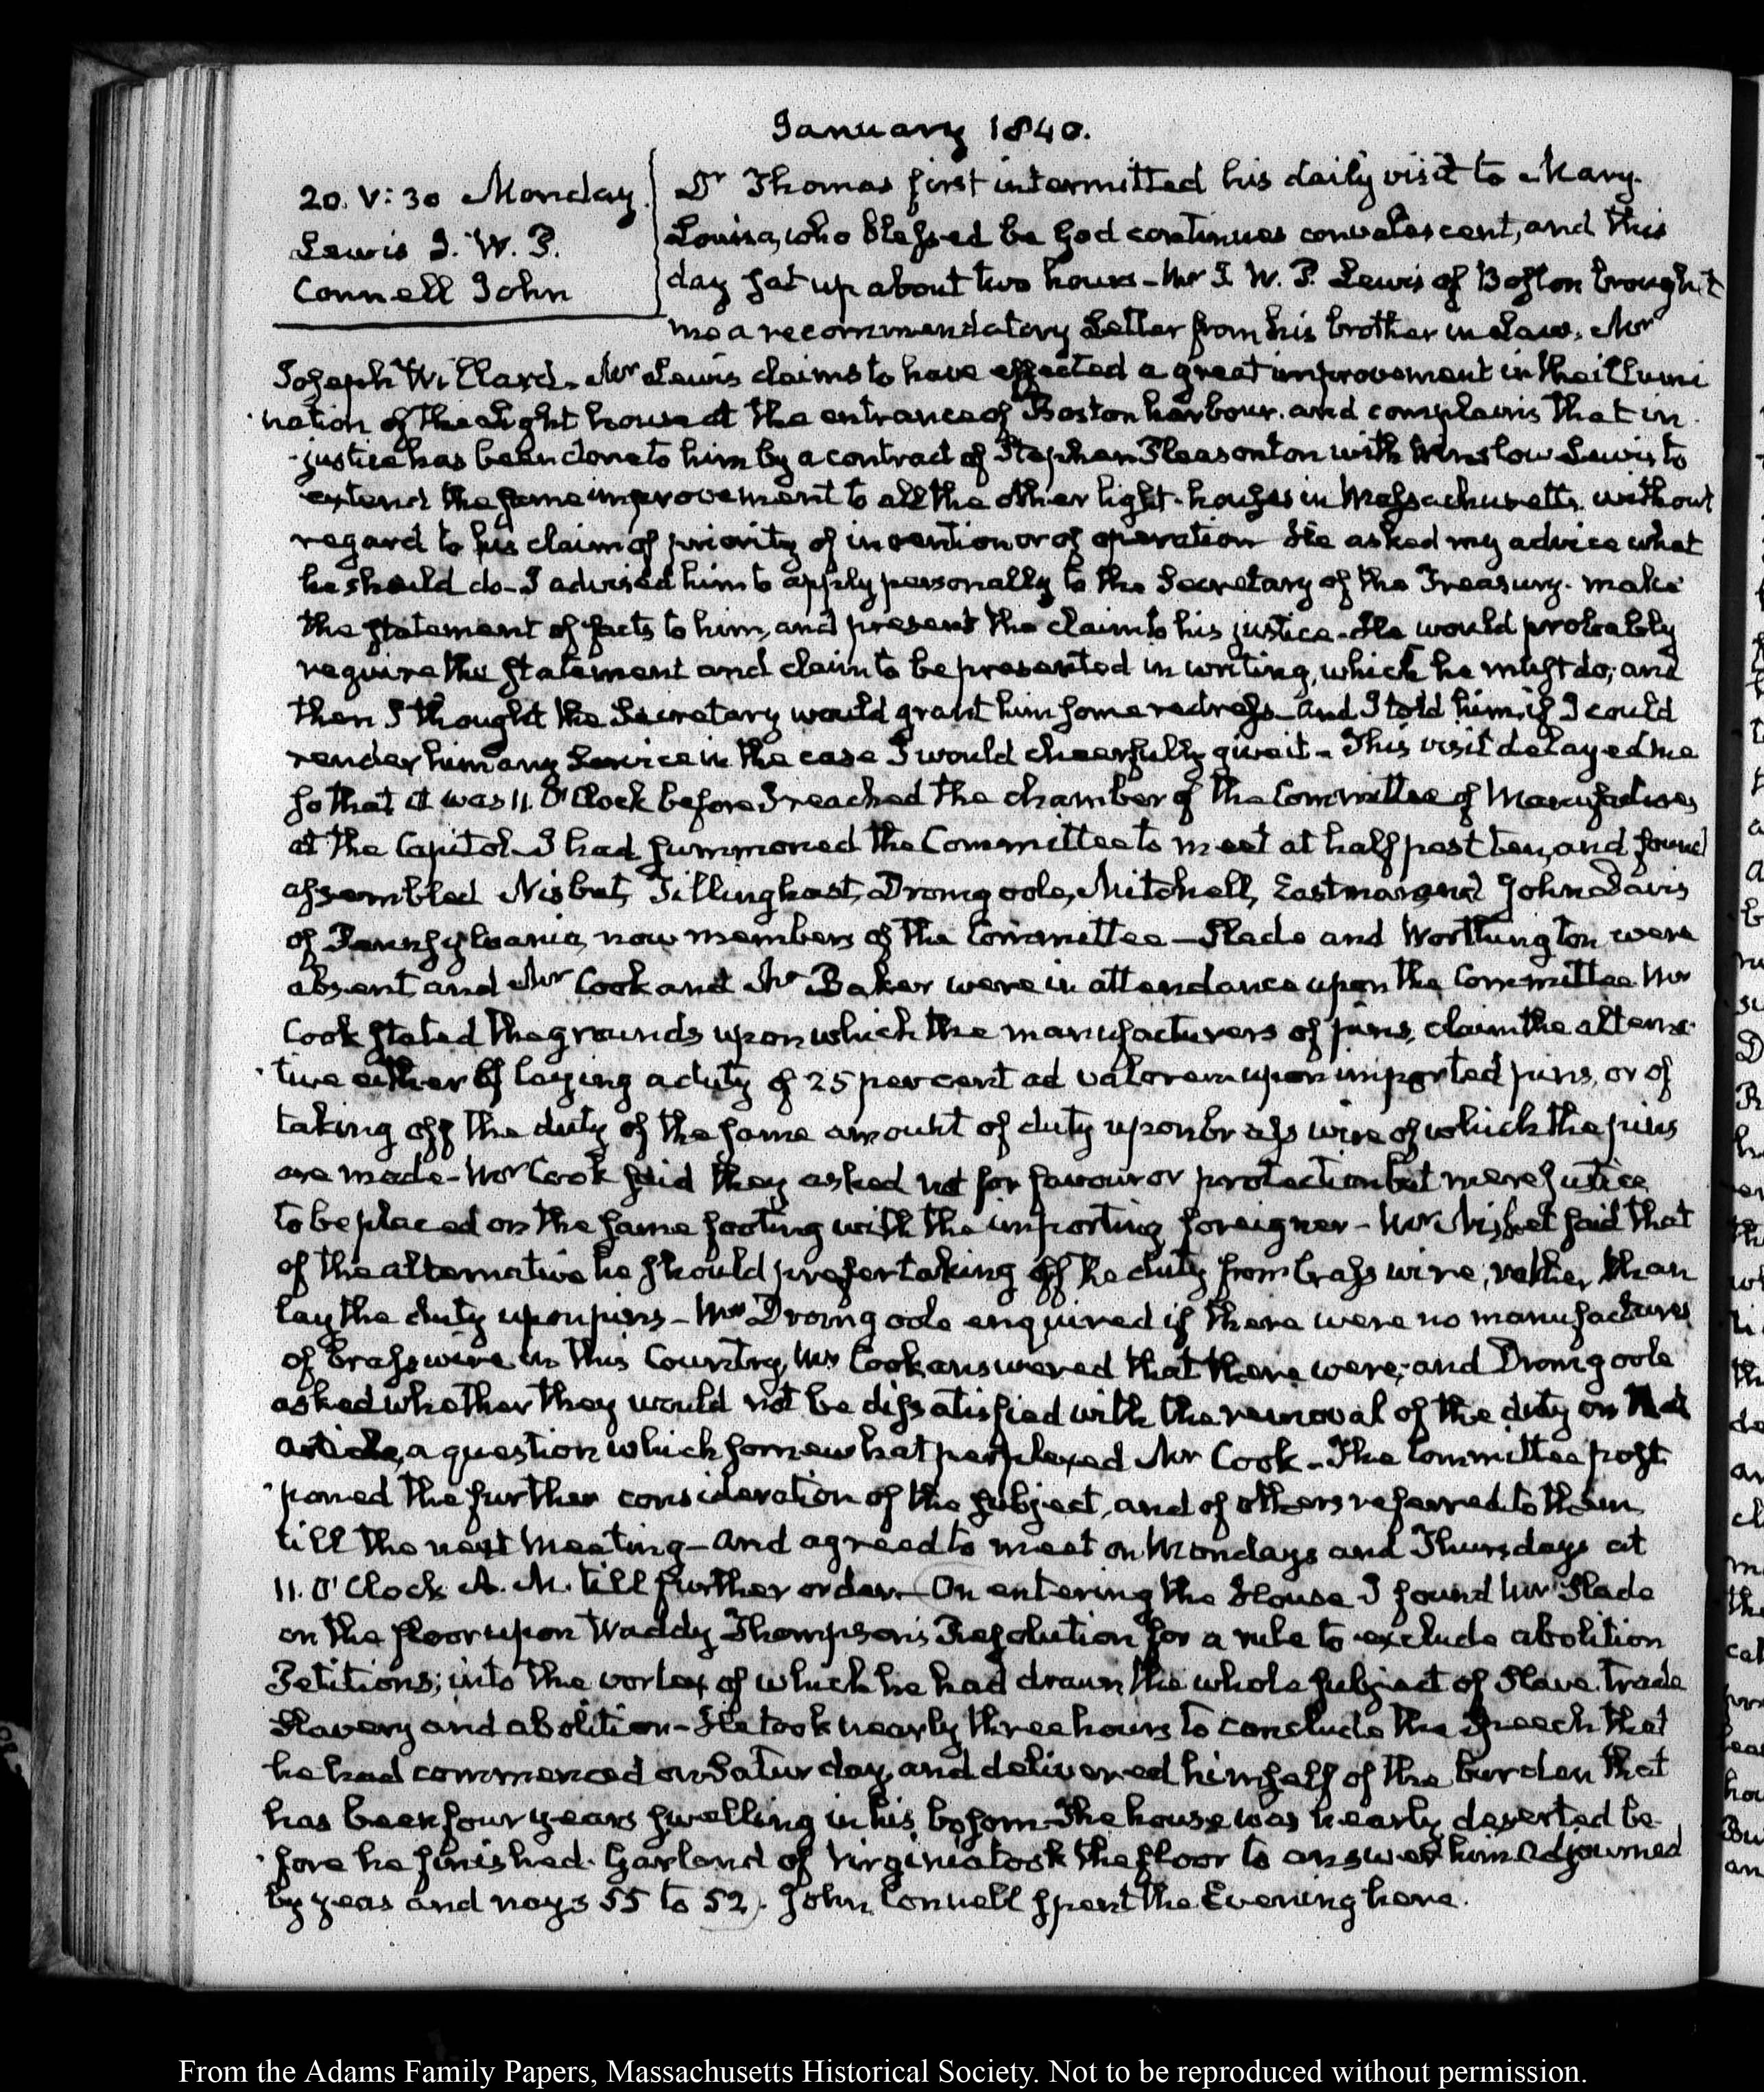 January 1840.
20. V:30 Monday.
Lewis I. W. P.
Connell John
Dr Thomas first intermitted his daily visit to Mary-
Louisa, who blessed be God continues convalescent, and this
day sat up about two hours - Mr I. W. P. Lewis of Boston brought
me a recommendatory Letter from his brother in Law, Mr
Joseph Willard. Mr Lewis claims to have effected a great improvement in the illumi
nation of the Light house at the entrance of Boston harbour. and complains that in-
-justice has been done to him by a contract of Stephen Pleasonton with Winslow Lewis to
extend the same improvement to all the other light-houses in Massachusetts. without
regard to his claim of priority of invention or of operation He asked my advice what
he should do - I advised him to apply personally to the Secretary of the Treasury. make
the statement of facts to him, and present the claim to his justice. He would probably
require the statement and claim to be presented in writing, which he must do; and
then I thought the Secretary would grant him some redress - and I told him, if I could
render him any Service in the case I would cheerfully give it - This visit delayed me
so that it was 11. O'Clock before I reached the chamber of the Committee of Manufactures
at the Capitol - I had summoned the Committee to meet at half past ten, and found
assembled Nisbet, Tillinghast, Dromgoole, Mitchell, Eastman and John Davis
of Pennsylvania, now members of the Committee - Slade and Worthington were
absent and Mr Cook and Mr Baker were in attendance upon the Committee. Mr
Cook stated the grounds upon which the manufacturers of pins, claim the alterna-
-tive either of laying a duty of 25 per cent ad valorem upon imported pins, or of
taking off the duty of the same amount of duty upon brass wire of which the pins
are made - Mr Cook said they asked not for favour or protection but mere justice
to be placed on the same footing with the importing foreigner - Mr Nisbet said that
of the alternative he should prefer taking off the duty from brass wire, rather than
lay the duty upon pins - Mr Dromgoole enquired if there were no manufactures
of brass wire in this Country, Mr Cook answered that there were; and Dromgoole
asked whether they would not be dissatisfied with the removal of the duty on that
article, a question which somewhat perplexed Mr Cook - The Committee post
-poned the further consideration of the subject, and of others referred to them
till the next meeting - and agreed to meet on Mondays and Thursdays at
11. O'Clock A. M. till further order - On entering the House I found Mr Slade
on the floor upon Waddy Thompson's Resolution for a rule to exclude abolition
Petitions; into the vortex of which he had drawn the whole subject of Slave trade
Slavery and abolition - He took nearly three hours to conclude the Speech that
he had commenced on Saturday, and delivered himself of the burden that
has been four years swelling in his bosom - The house was nearly deserted be-
-fore he finished. Garland of Virginia took the floor to answer him. Adjourned
by yeas and nays 55 to 52). John Connell spent the Evening here.
From the Adams Family Papers, Massachusetts Historical Society. Not to be reproduced without permission.